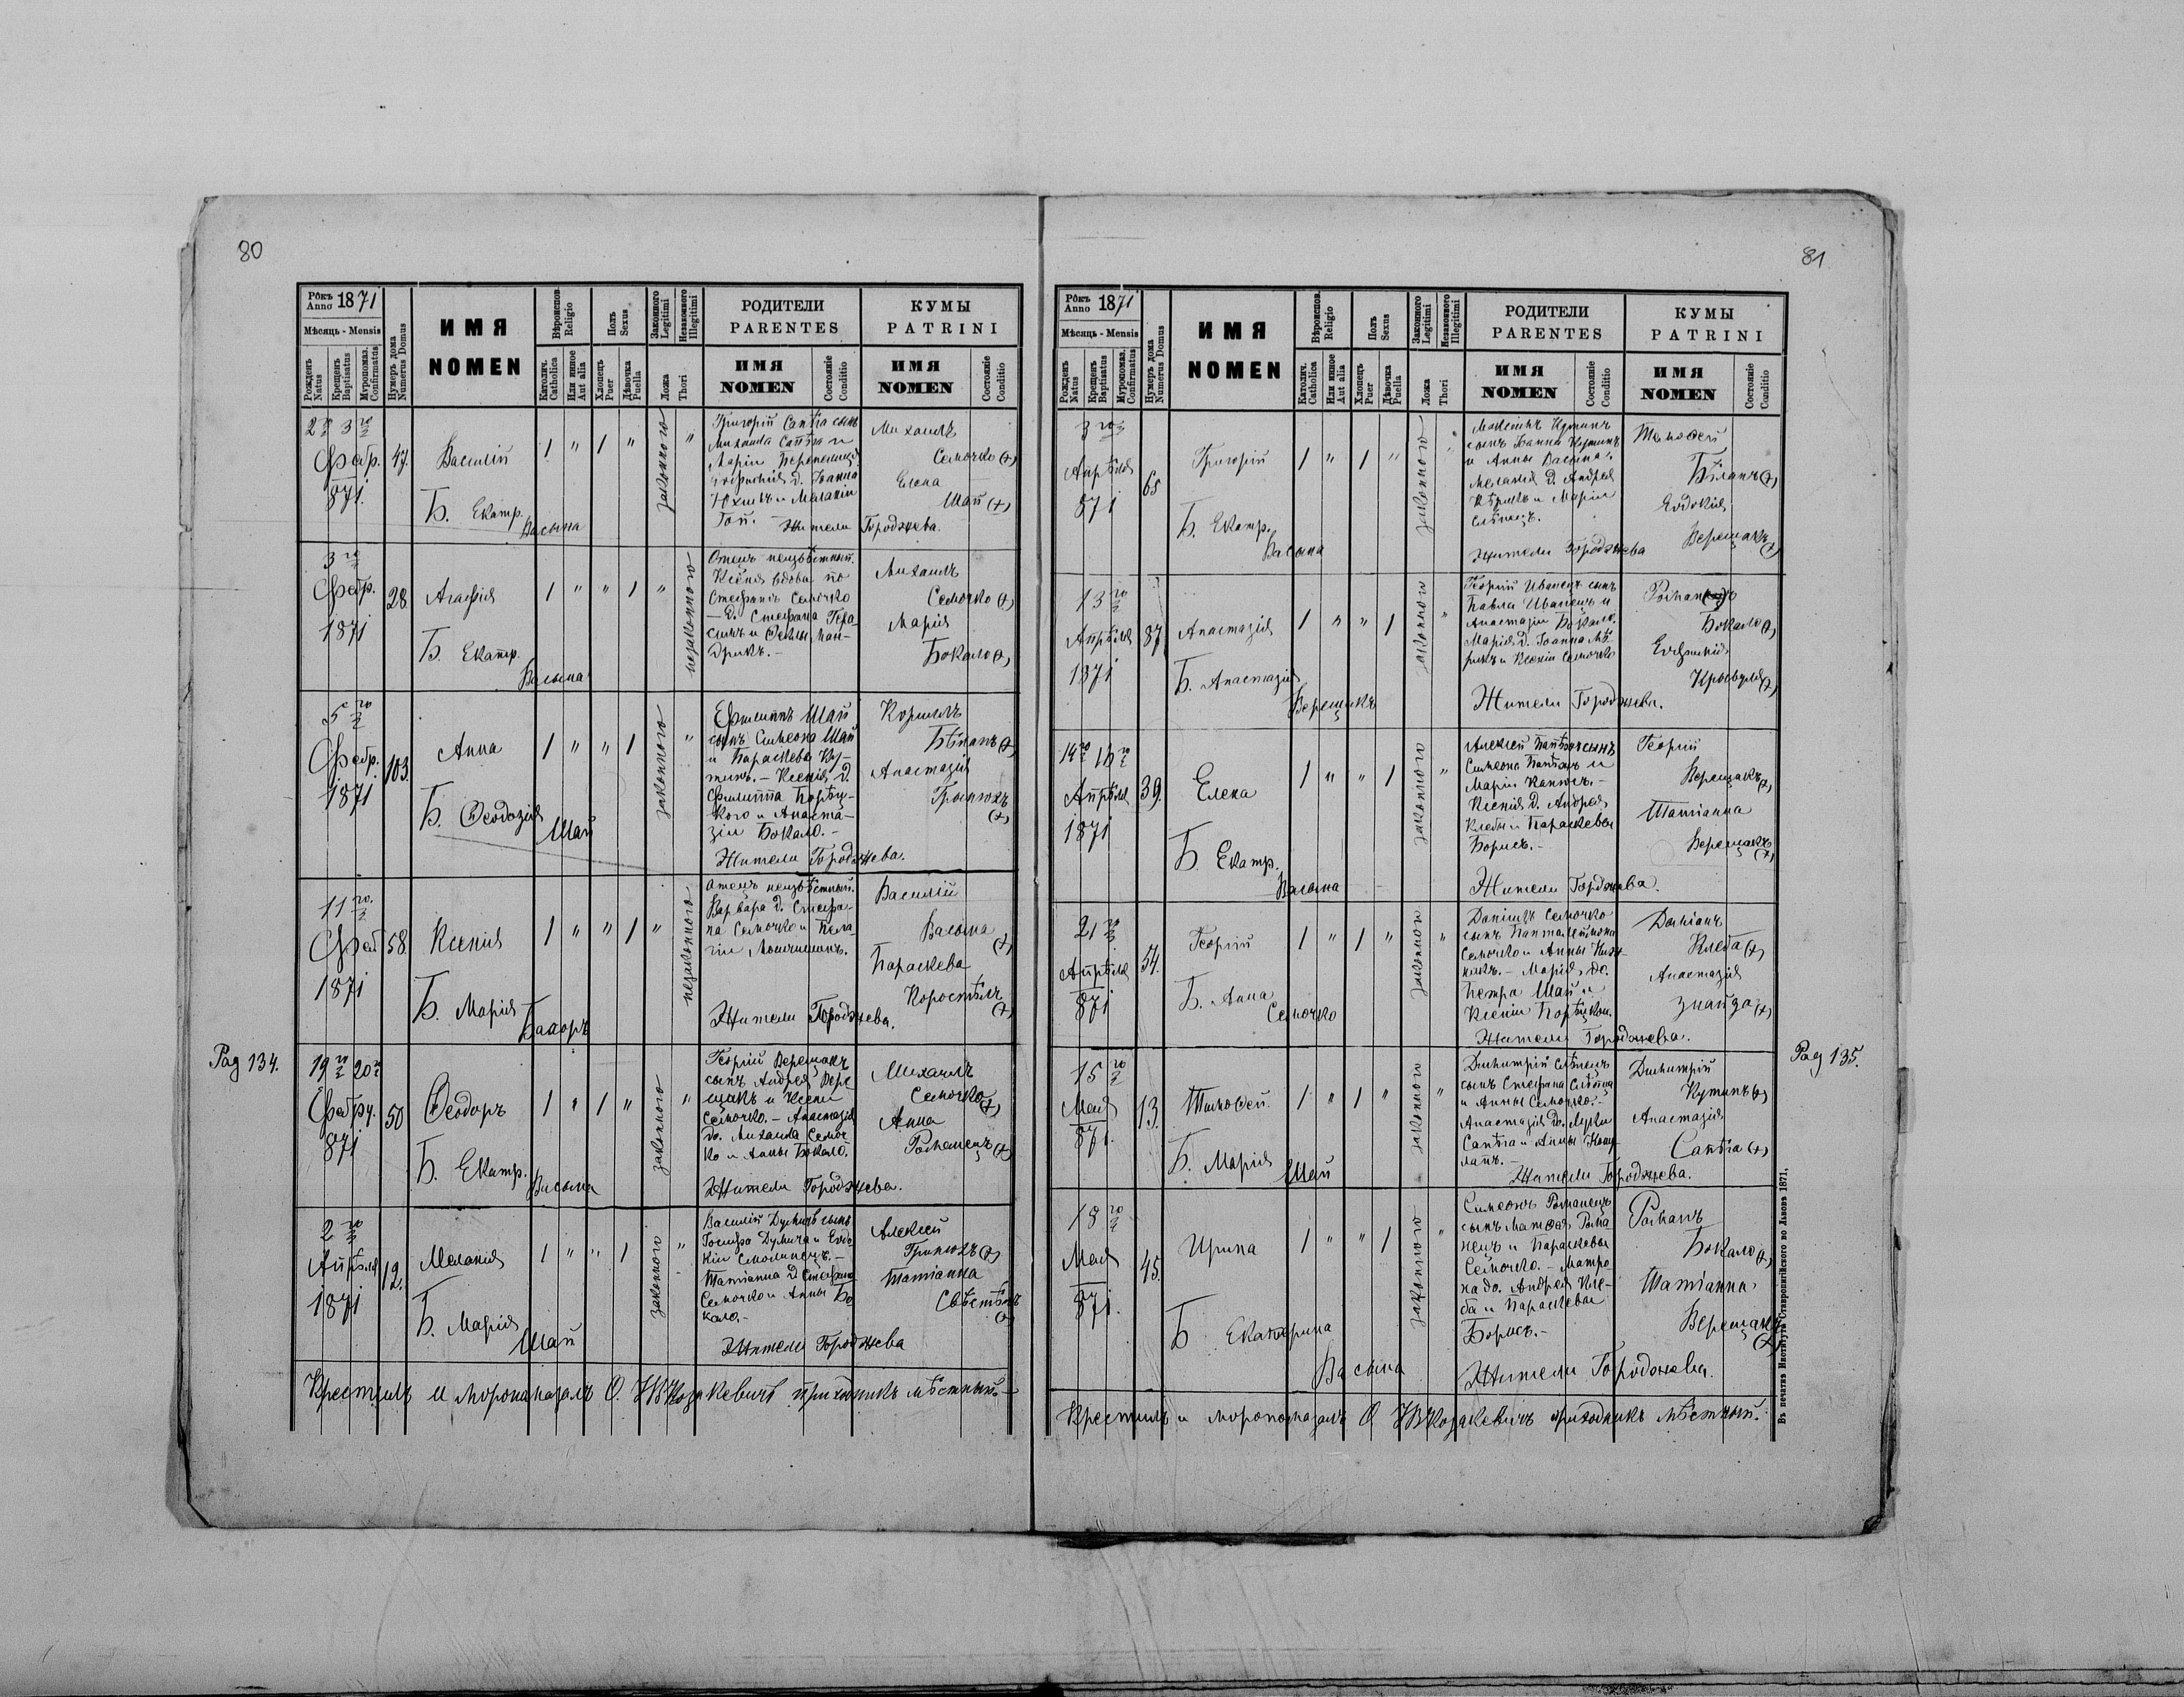 80
Рôкъ Anno 1871
Мѣсяць - Mensis
Рожденъ Natus
Крещенъ Baptisatus
Мѵропомаз. Confirmatus
Нумеръ дома Numerus Domus
ИМЯ NOMEN
Вѣроиспов. Religio
Католич. Catholica
Или инное Aut alia
Полъ Sexus
Хлопець Puer
Дѣвочка Puella
Законного Legitimi
Незаконного Illegitimi
Ложа Thori
РОДИТЕЛИ PARENTES
ИМЯ NOMEN
Состоянiе Conditio
КУМЫ PATRINI
ИМЯ NOMEN
Состоянiе Conditio
2 го 3 го
Фебр.
871.
47.
Василій
Б. Екатр.
Васына
1 " 1 "
законного
"
Григорій Сапѣга сынъ
Михаила Сапѣга и
Маріи
д. Іоанна
и Меланіи
Гой. —
Жители Городжева.
Михаилъ
Семочко (+)
Елена
Шай (+)
3 го
Фебр.
1871
28.
Агафія
Б. Екатр.
Васына
1 " " 1
незаконного
"
Отецъ неизвѣстный.
Ксенія вдова по
Стефанѣ Семочко
— д. Стефана Гера-
симъ и Ѳеклы Пан-
дракъ. —
Михаилъ
Семочко (+)
Марія
Бокало (+)
5 го
Фебр.
1871
103.
Анна
Б. Ѳеодозія
Шай
1 " " 1
законного
"
Филиппъ Шай
сынъ Симеона Шай
и Параскева Ку-
тинъ. — Ксенія д.
Филиппа Порѣц-
кого и Анаста-
зіи Бокало. —
Жители Городжева.
Корнилъ
Бѣланъ (+)
Анастазія
Гринюхъ
(+)
11 го
Феб
1871
58.
Ксенія
Б. Марія
Бахоръ
1 " " 1
незаконного
"
Отецъ неизвѣстный.
Варвара д. Стефа-
на Семочко и Пела-
гіи
Жители Городжева.
Василій
Васына
(+)
Параскева
Коростѣль
(+)
Pag 134.
19 го 20 го
Фебру.
871
50
Ѳеодоръ
Б. Екатр.
Васына
1 " 1 "
законного
"
Георгій Верещакъ
сынъ Андрея Вере-
щакъ и Ксеніи
Семочко. — Анастазія
до. Михаила Семоч-
ко и Анны Бокало.
Жители Городжева.
Михаилъ
Семочко (+)
Анна
Романецъ (+)
2 го
Апрѣля
1871
12.
Меланія
Б. Марія
Шай
1 " " 1
законного
"
Василій Думичъ сынъ
Іосифа Думича и Евдо-
кіи Смолинецъ. —
Татіанна д Стефана
Семочко и Анны Бо-
кало. —
Жители Городжева
Алексей
Гринюхъ (+)
Татіанна
(+)
Крестилъ и моропомазалъ О. І В Козакевичъ приходникъ мѣстный. —
81
Рôкъ Anno 1871
Мѣсяць - Mensis
Рожденъ Natus
Крещенъ Baptisatus
Мѵропомаз. Confirmatus
Нумеръ дома Numerus Domus
ИМЯ NOMEN
Вѣроиспов. Religio
Католич. Catholica
Или инное Aut alia
Полъ Sexus
Хлопець Puer
Дѣвочка Puella
Законного Legitimi
Незаконного Illegitimi
Ложа Thori
РОДИТЕЛИ PARENTES
ИМЯ NOMEN
Состоянiе Conditio
КУМЫ PATRINI
ИМЯ NOMEN
Состоянiе Conditio
3 го
Апрѣля
871
65
Григорій
Б. Екатр.
Васына
1 " 1 "
законного
"
Максимъ Кутинъ
сынъ Іоанна Кутинъ
и Анны Васына.
Меланія д. Андрея
и Маріи
Слѣпецъ.
Жители Городжева
Тимоѳей
Бѣланъ (+)
Евдокія
Верещакъ
(+)
13 го
Апрѣля
1871
87
Анастазія
Б. Анастазія
Верещакъ
1 " " 1
законного
"
Георгій Иванецъ сынъ
Павла Иванецъ и
Анастазіи Бокало.
Марія д. Іоанна
и Ксеніи Семочко
Жители Городжева.
Романъ
Бокало (+)
(+)
14 го 16 го
Апрѣля
1871
39.
Елена
Б Екатр.
Васына
1 " " 1
законного
"
Алексей сынъ
Симеона и
Маріи
Ксенія д. Андрея
Клебы и Параскевы
Борисъ. —
Жители Городжева.
Георгій
Верещакъ
(+)
Татіанна
Верещакъ
(+)
21 го
Апрѣля
871
54.
Георгій
Б. Анна
Семочко
1 " 1 "
законного
"
Даніилъ Семочко
сынъ Панталеймона
Семочко и Анны
Марія, до.
Петра Шай и
Ксеніи Порѣцкои.
Жители Городжева.
Даміанъ
Клеба (+)
Анастазія
Знайда (+)
Pag 135.
15 го
Мая
871.
13.
Тимоѳей.
Б. Марія
Шай
1 " 1 "
законного
"
Димитрій Слѣпецъ
сынъ Стефана Слѣпца
и Анны Семочко. —
Анастазія до. Луки
Сапѣга и Анны
Жители Городжева.
Димитрій
Кутинъ (+)
Анастазія
Сапѣга (+)
18 го
Мая
871.
45.
Ирина
Б Екатерина
Васына
1 " " 1
законного
"
Симеонъ Романецъ
сынъ Матѳея Рома-
нецъ и Параскевы
Семочко. — Матро-
на до. Андрея Кле-
ба и Параскевы
Борисъ. —
Жители Городжева.
Романъ
Бокало (+)
Татіанна
Верещакъ
(+)
Крестилъ и моропомазалъ О І В Козакевичъ приходникъ мѣстный.
Въ печатнѣ Института Ставропигійского во Львовѣ 1871.